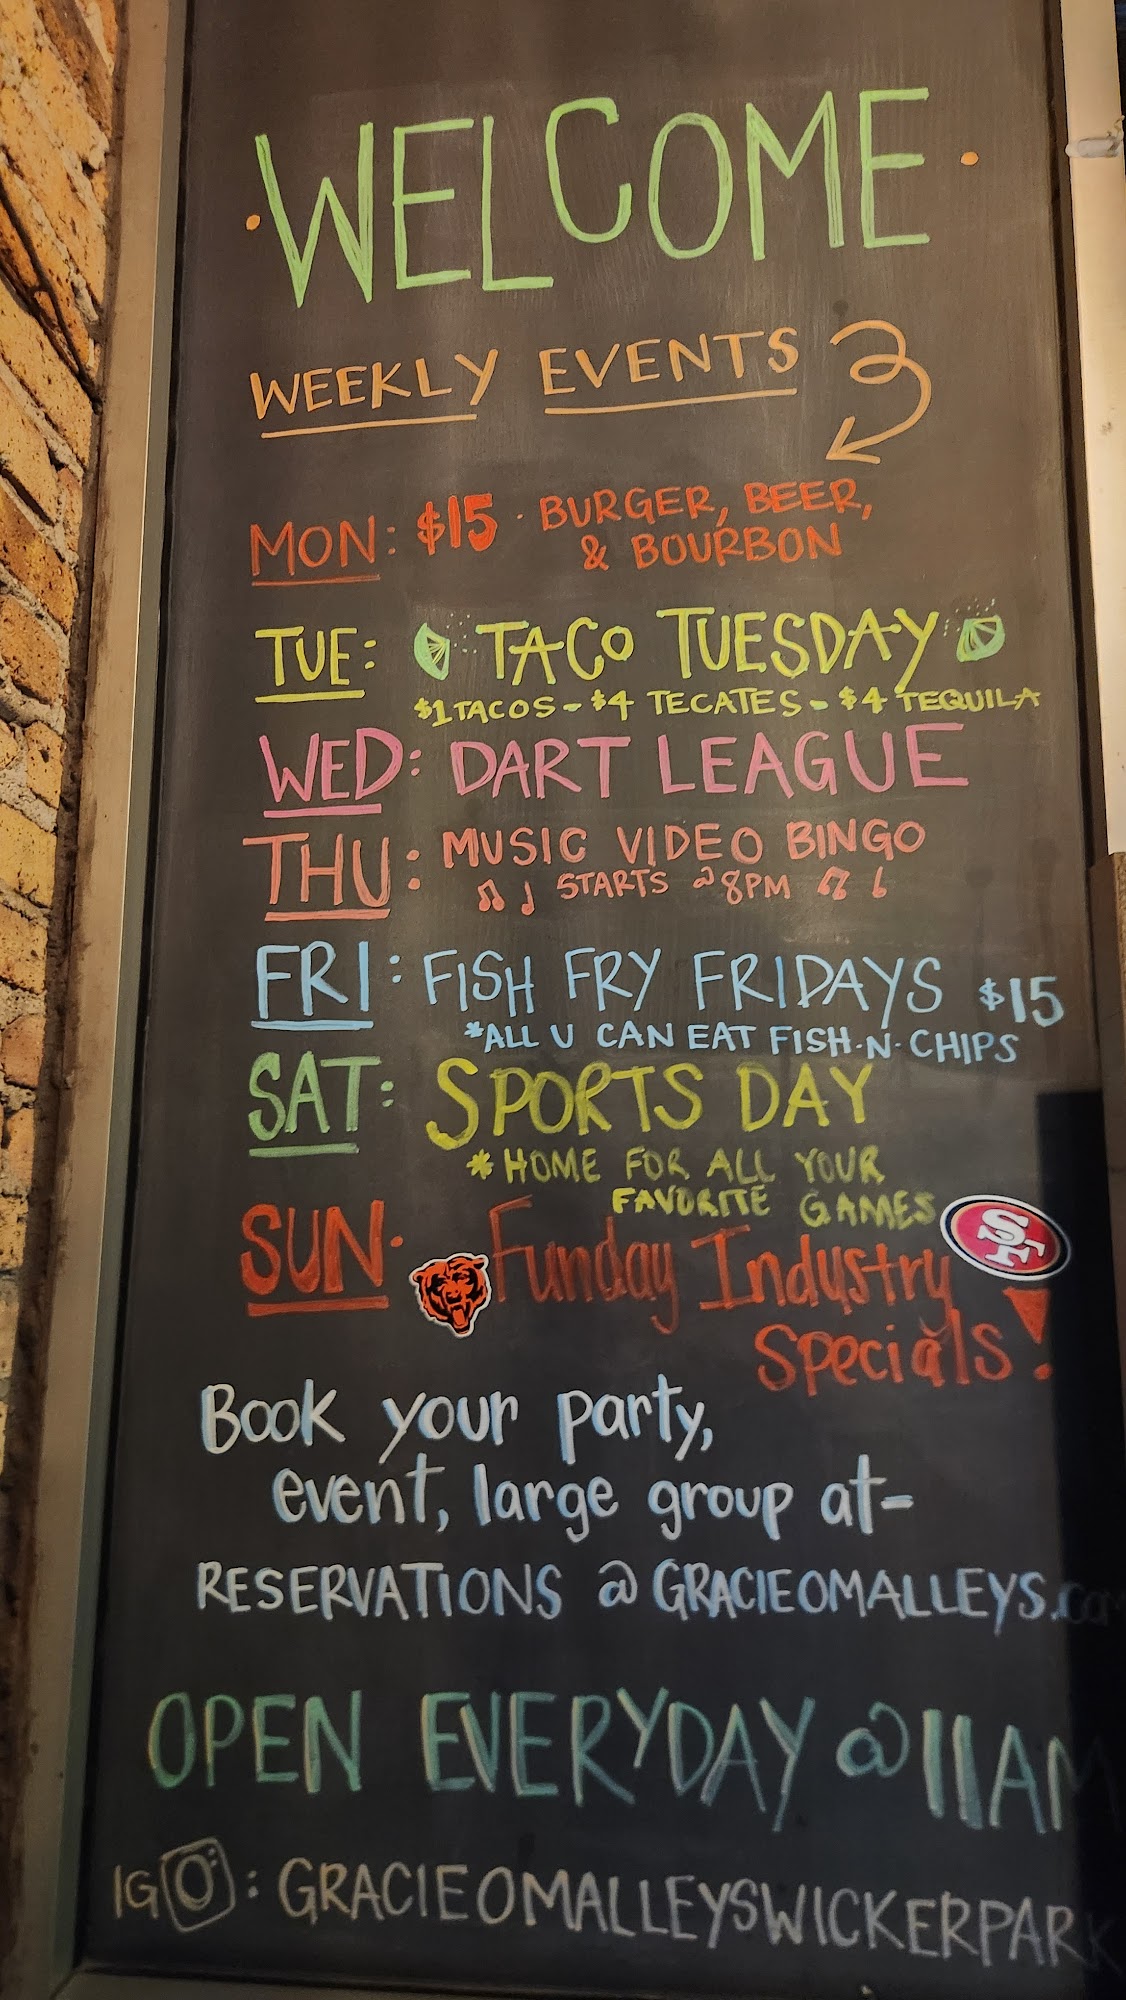 WELCOME
WEEKLY EVENTS
MON: $15 · BURGER, BEER,
& BOURBON
TUE: TACO TUESDAY
$1 TACOS - $4 TECATES - $4 TEQUILA
WED: DART LEAGUE
THU: MUSIC VIDEO BINGO
STARTS @ 8PM
FRI: FISH FRY FRIDAYS $15
*ALL U CAN EAT FISH-N-CHIPS
SAT: SPORTS DAY
*HOME FOR ALL YOUR
FAVORITE GAMES
SF
SUN: Funday Industry
Specials!
Book your party,
event, large group at-
RESERVATIONS @ GRACIEOMALLEYS.com
OPEN EVERYDAY @ 11AM
IG: GRACIEOMALLEYSWICKERPARK